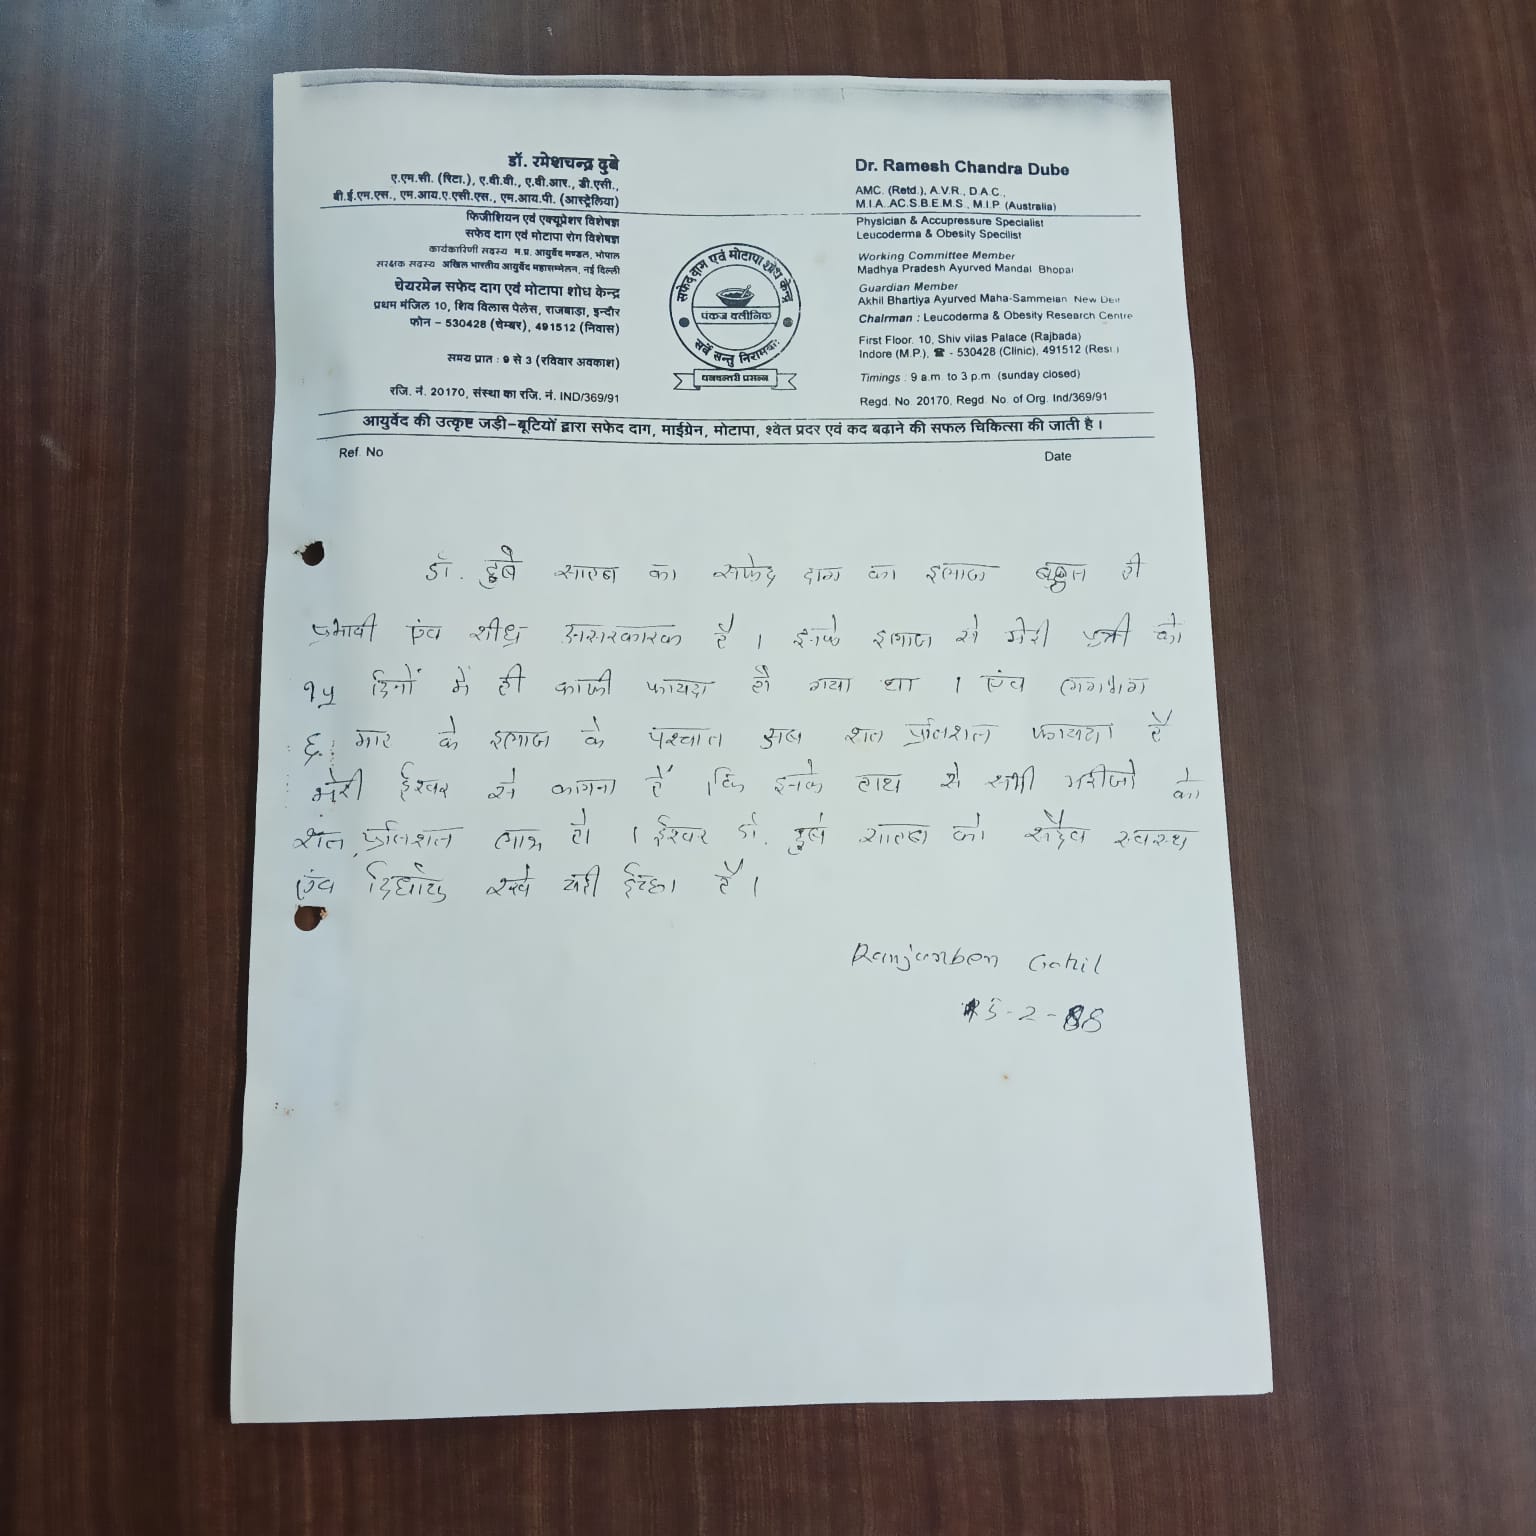 डॉ. रमेशचन्द्र दुबे
ए.एम.सी. (रिटा.), ए.वी.वी., ए.वी.आर., डी.एसी.,
बी.ई.एम.एस., एम.आय.ए.एसी.एस., एम.आय.पी. (आस्ट्रेलिया)
फिजीशियन एवं एक्यूप्रेशर विशेषज्ञ
सफेद दाग एवं मोटापा रोग विशेषज्ञ
कार्यकारिणी सदस्य म.प्र. आयुर्वेद मण्डल, भोपाल
संरक्षक सदस्य अखिल भारतीय आयुर्वेद महासम्मेलन, नई दिल्ली
चेयरमेन सफेद दाग एवं मोटापा शोध केन्द्र
प्रथम मंजिल 10, शिव विलास पेलेस, राजबाड़ा, इन्दौर
फोन - 530428 (चेम्बर), 491512 (निवास)
समय प्रात : 9 से 3 (रविवार अवकाश)
रजि. नं. 20170, संस्था का रजि. नं. IND/369/91
सफेद दाग एवं मोटापा शोध केन्द्र
पंकज क्लीनिक
सर्वे सन्तु निरामयाः
धनवन्तरी प्रसन्न
Dr. Ramesh Chandra Dube
AMC. (Retd.), A.V.R., D.A.C.,
M.I.A..AC.S.B.E.M.S., M.I.P. (Australia)
Physician & Accupressure Specialist
Leucoderma & Obesity Specilist
Working Committee Member
Madhya Pradesh Ayurved Mandal Bhopal
Guardian Member
Akhil Bhartiya Ayurved Maha-Sammelan New Delhi
Chairman : Leucoderma & Obesity Research Centre
First Floor. 10, Shiv vilas Palace (Rajbada)
Indore (M.P.), ☎ - 530428 (Clinic), 491512 (Resi.)
Timings : 9 a.m. to 3 p.m. (sunday closed)
Regd. No. 20170, Regd. No. of Org. Ind/369/91
आयुर्वेद की उत्कृष्ट जड़ी-बूटियों द्वारा सफेद दाग, माईग्रेन, मोटापा, श्वेत प्रदर एवं कद बढ़ाने की सफल चिकित्सा की जाती है।
Ref. No
Date
डॉ. दुबे साहब का सफेद दाग का इलाज बहुत ही
प्रभावी एंव शीघ्र असरकारक है। इनके इलाज से मेरी पुत्री को
१५ दिनों में ही काफी फायदा हो गया था। एंव लगभग
६ माह के इलाज के पश्चात अब शत प्रतिशत फायदा है
मेरी ईश्वर से कामना है कि इनके हाथ से सभी मरीजो को
शत प्रतिशत लाभ हो। ईश्वर डॉ. दुबे साहब को सदैव स्वस्थ
एंव दिर्घायु रखे यही ईच्छा है।
Ranjanben Gohil